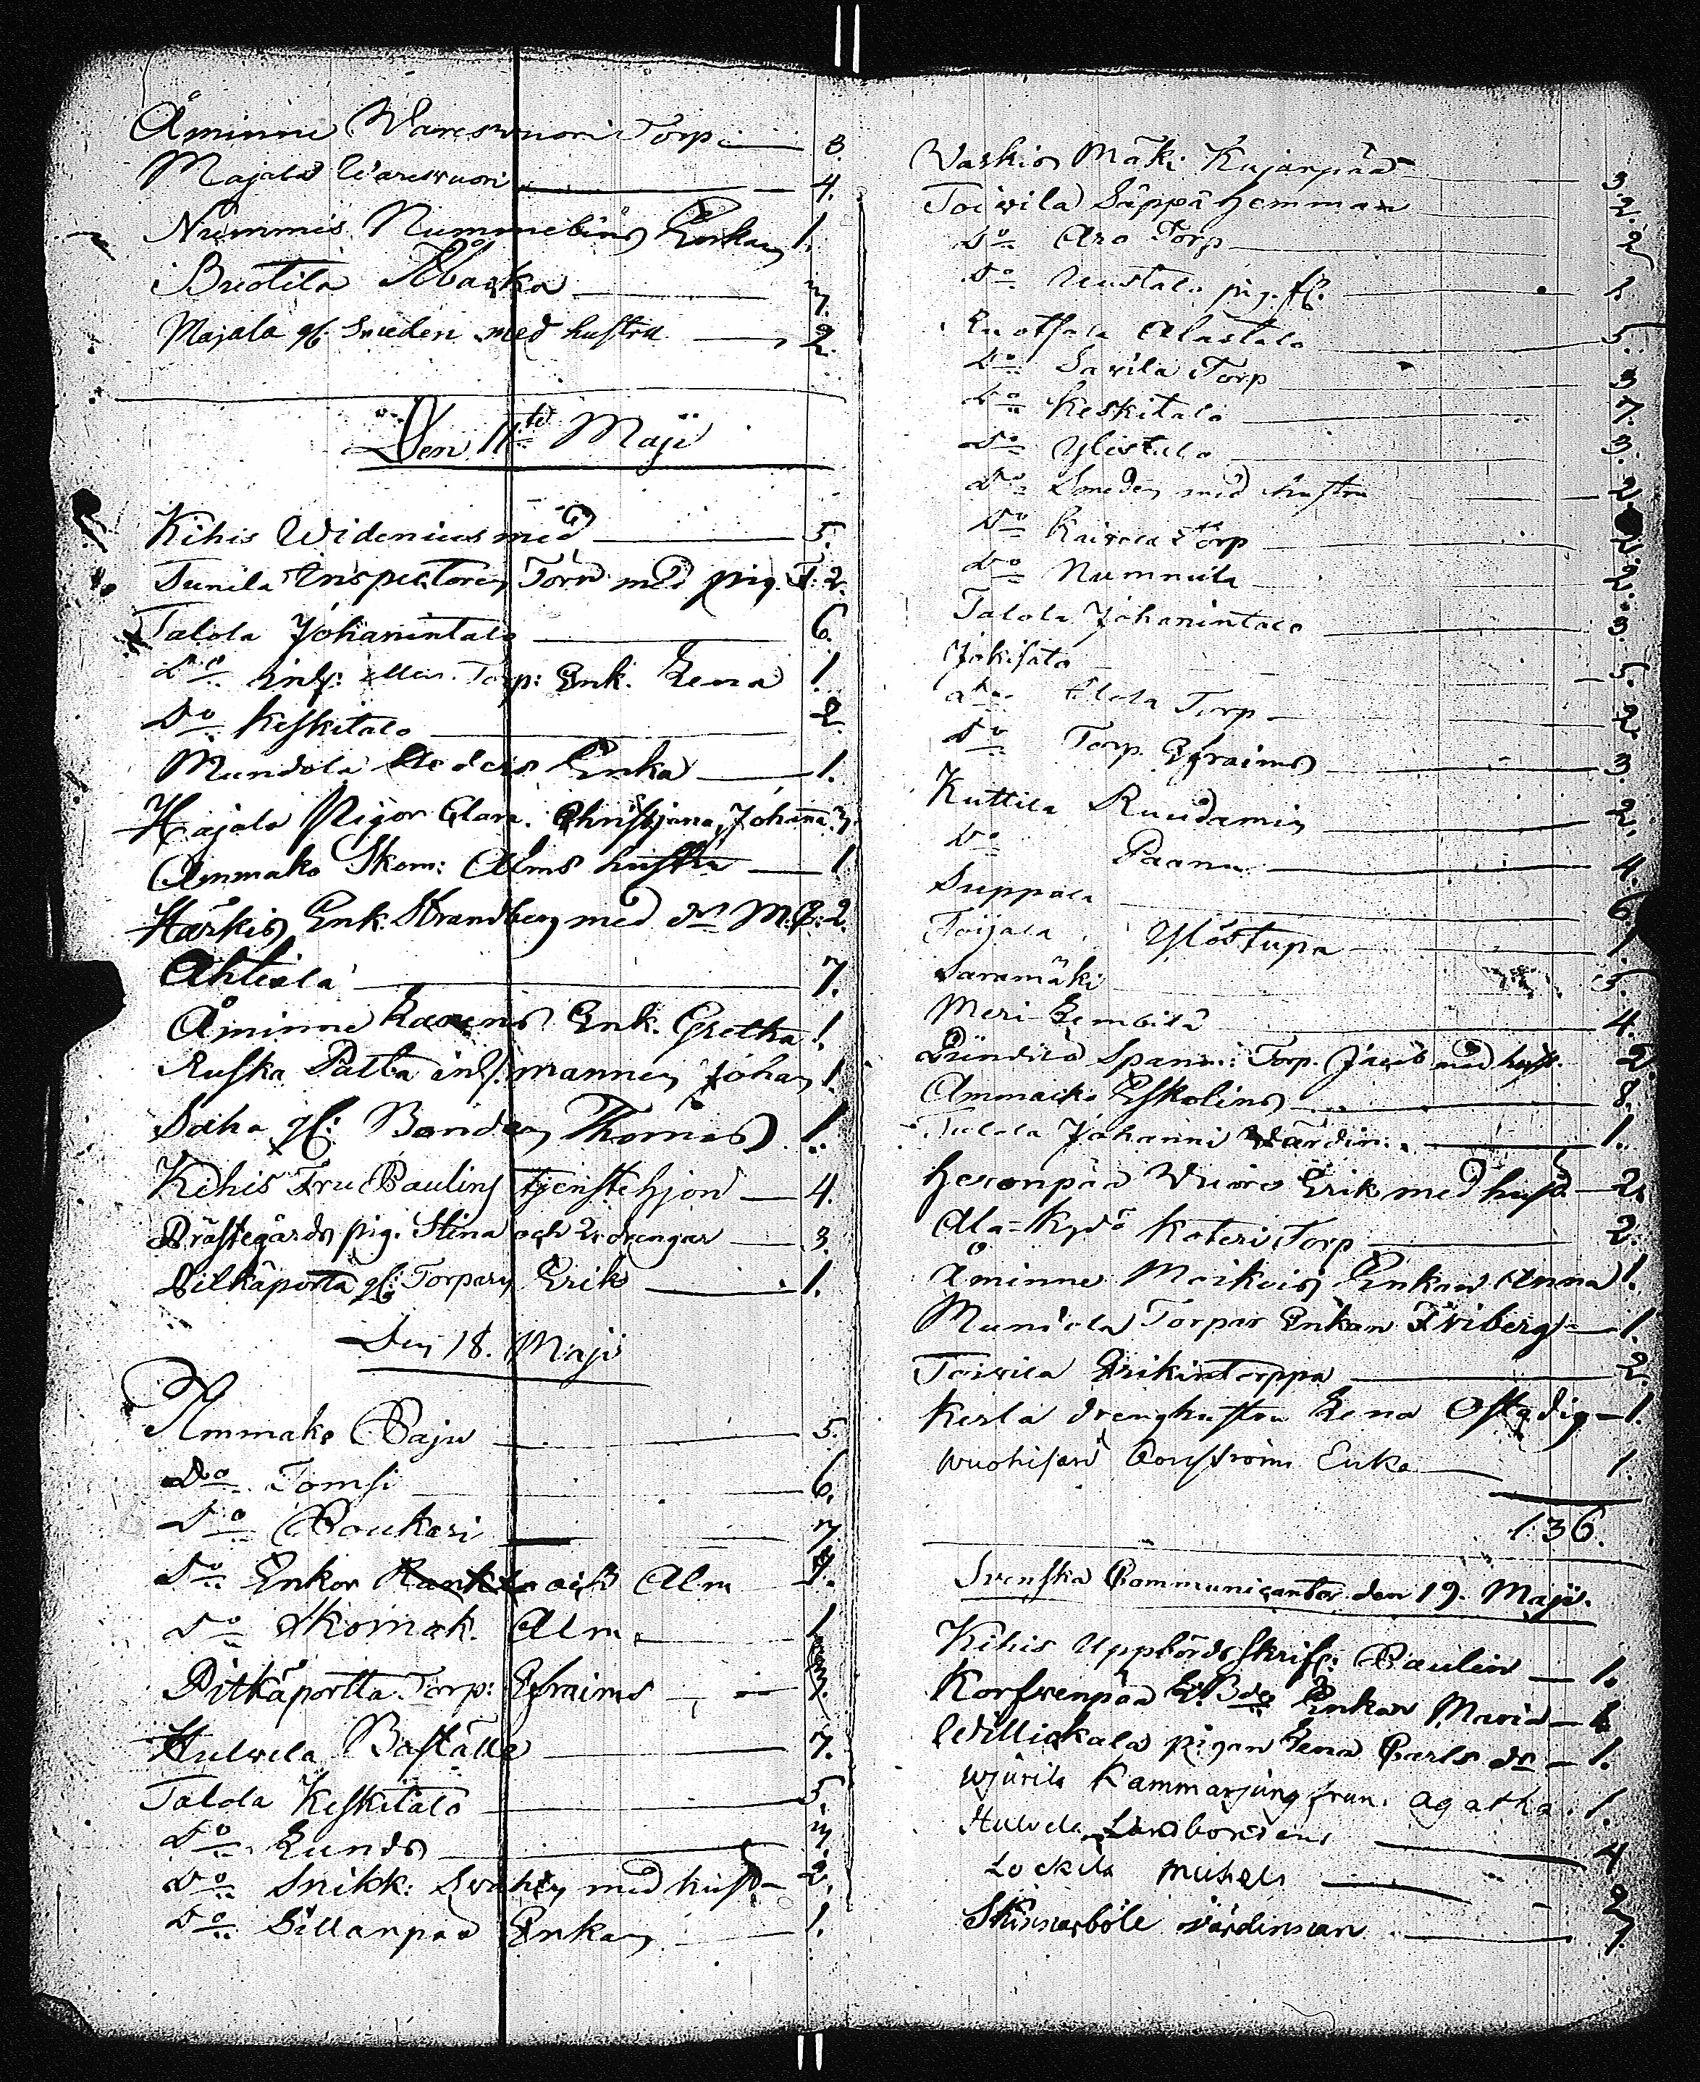 Åminne Waresvuori Torp. 3.
Majala Waresvuori 4.
Nummis Nummelins Enkan 1.
Bustila 3.
Majala gl. Smeden med hustru 2.
Den 11te Maji
Kihis Widenius med 5.
Tunila Inspectoren Törn med pig. 2.
Talola Johanintalo 6.
Do Torp: Enk. Lena 1.
Do Keskitalo 2.
Mundola Enka 1.
Hajala Pigor Clara, Christjana, Johanna 3.
Ammako Skom: Alms hustru 1.
Härkis Enk. Strandberg med dr M. 2.
Ahtiala 7.
Åminne Enk. Gretha 1.
Ruska Palta inh. mannen Johan 1.
Saha gl: Bonden Thomas 1.
Kihis Fru Paulins tjenstehjon 4.
Prästegårds pig. Stina och 2 drengar 3.
Pitkäportta gl: Torparn Erik 1.
Den 18. Maji
Ammako Paju 5.
Do Tomsi 6.
Do Poukari 7.
Do Enkor Alm
Do Skomak. Alm 1
Pitkäportta Torp: Efraims
Hulvela Baställa 7.
Talola Keskitalo 5.
Do Lunds 3.
Do Snikk: med hust 2.
Do Sillanpää Enkan 1.
Waskio Mäki Kujanpää 3.
Toivila Säppä hemman 2.
Do Aro Torp 2
Do Uustalo pig. 1.
Ruotsala Alastalo 5.
Do Savila Torp 3
Do Keskitalo 7.
Do Ylistalo 3.
Do Smeden med hustru 2
Do Kaivola Torp 2.
Do Nummila 2.
Talola Johanintalo 3.
Jokisalo 5.
Do Torp 2
Do Torp. Efraims 3.
Kuttila 2.
Do Paanu 4.
Suppala 6
Toijala Ylöstupa 1.
Saramäki 5.
Meri 4.
Torp. Jacob med hust. 2.
Ammako Eskolins 8.
Talola Johanni Värdin. 1.
Wuoro Erik med hust 2.
Ala-Kydö Kateri Torp 2.
Åminne Enkan Anna 1.
Mundola Torpar Enkan Friberg 1.
Toivila Erikintorppa 2.
Kesla drenghustru Lena 1.
Enka 1.
136.
Svenska Communicanter den 19. Maji.
Kihis Uppbördsskrif: Paulin 1.
Korfvenpää Enkan Maria 1.
Willickala pigan Lena Carls dr 1.
Wjurila Kammarjungfrun Agatha 1.
4
Lockila 2
Skinnarböle värdinnan 1.